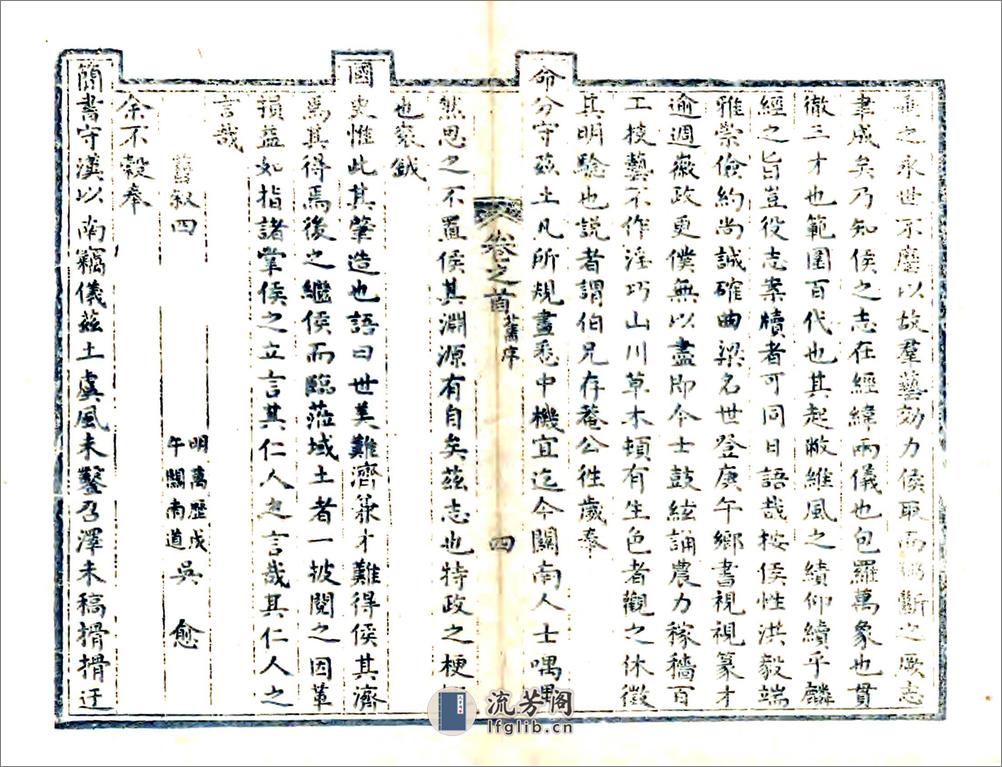 之永世不磨以故羣藝効力侯取而斷之厥志
聿成矣乃知侯之志在經緯兩儀也包羅萬象也貫
徹三才也範圍百代也其起敝維風之績仰續乎麟
經之旨豈役志案牘者可同日語哉按侯性洪毅端
雅崇儉約尚誠確曲梁名世登庚午鄉書視視篆才
逾週薇政更僕無以盡即今士鼓絃誦農力稼穡百
工技藝不作淫巧山川草木頓有生色者觀之休徵
其明驗也說者謂伯兄存菴公徃歲奉
命分守茲土凡所規畫悉中機宜迄今關南人士喁喁
然思之不置侯其淵源有自矣茲志也特政之梗
也袞鉞
國史惟此其肇造也語曰世美難濟兼才難得侯其濟
焉其得焉後之繼侯而臨蒞域土者一披閱之因革
損益如指諸掌侯之立言其仁人之言哉其仁人之
言哉
舊叙四
明萬歷戊午關南道吳愈
余不穀奉
簡書守漢以南竊儀茲土虞風未鑿召澤未稿搰搰迂
卷之首 舊序
四
流芳阁
lfglib.cn